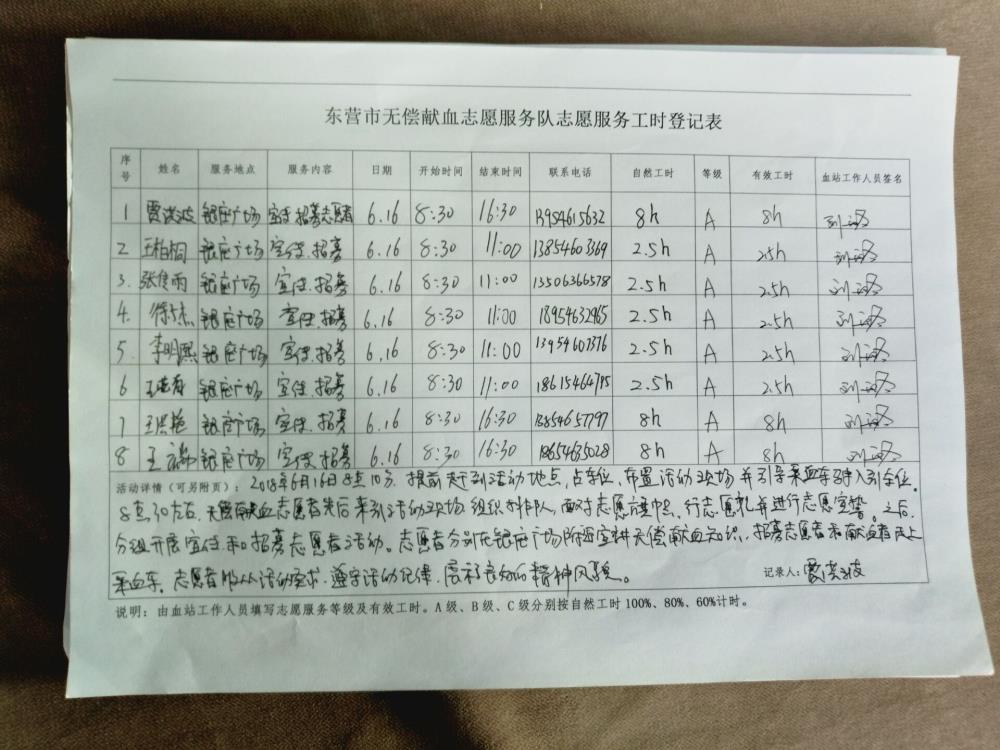 东营市无偿献血志愿服务队志愿服务工时登记表
序号 姓名 服务地点 服务内容 日期 开始时间 结束时间 联系电话 自然工时 等级 有效工时 血站工作人员签名
1 贾洪波 银座广场 宣传.招募志愿者 6.16 8:30 16:30 13954615632 8h A 8h
2 王柏桐 银座广场 宣传.招募 6.16 8:30 11:00 13854603369 2.5h A 2.5h
3. 张俊雨 银座广场 宣传.招募 6.16 8:30 11:00 13506366578 2.5h A 2.5h
4. 徐杰 银座广场 宣传.招募 6.16 8:30 11:00 18954632965 2.5h A 2.5h
5. 李明熙 银座广场 宣传.招募 6.16 8:30 11:00 13954607376 2.5h A 2.5h
6 银座广场 宣传.招募 6.16 8:30 11:00 2.5h A 2.5h
7 王洪艳 银座广场 宣传.招募 6.16 8:30 16:30 13854657797 8h A 8h
8 王 银座广场 宣传.招募 6.16 8:30 16:30 18654635028 8h A 8h
活动详情（可另附页）： 2018年6月16日8点10分.提前赶到活动地点,占车位,布置活动现场并引导采血车驶入引车位.
8点30左右,无偿献血志愿者先后来到活动现场.组织排队,面对志愿旗帜,行志愿礼并进行志愿宣誓。之后,
分组开展宣传和招募志愿者活动。志愿者分别在银座广场附近宣讲无偿献血知识,招募志愿者和献血者上
采血车.志愿者服从活动要求.遵守活动纪律.展称良好的精神风貌。 记录人:贾洪波
说明：由血站工作人员填写志愿服务等级及有效工时。A级、B级、C级分别按自然工时100%、80%、60%计时。